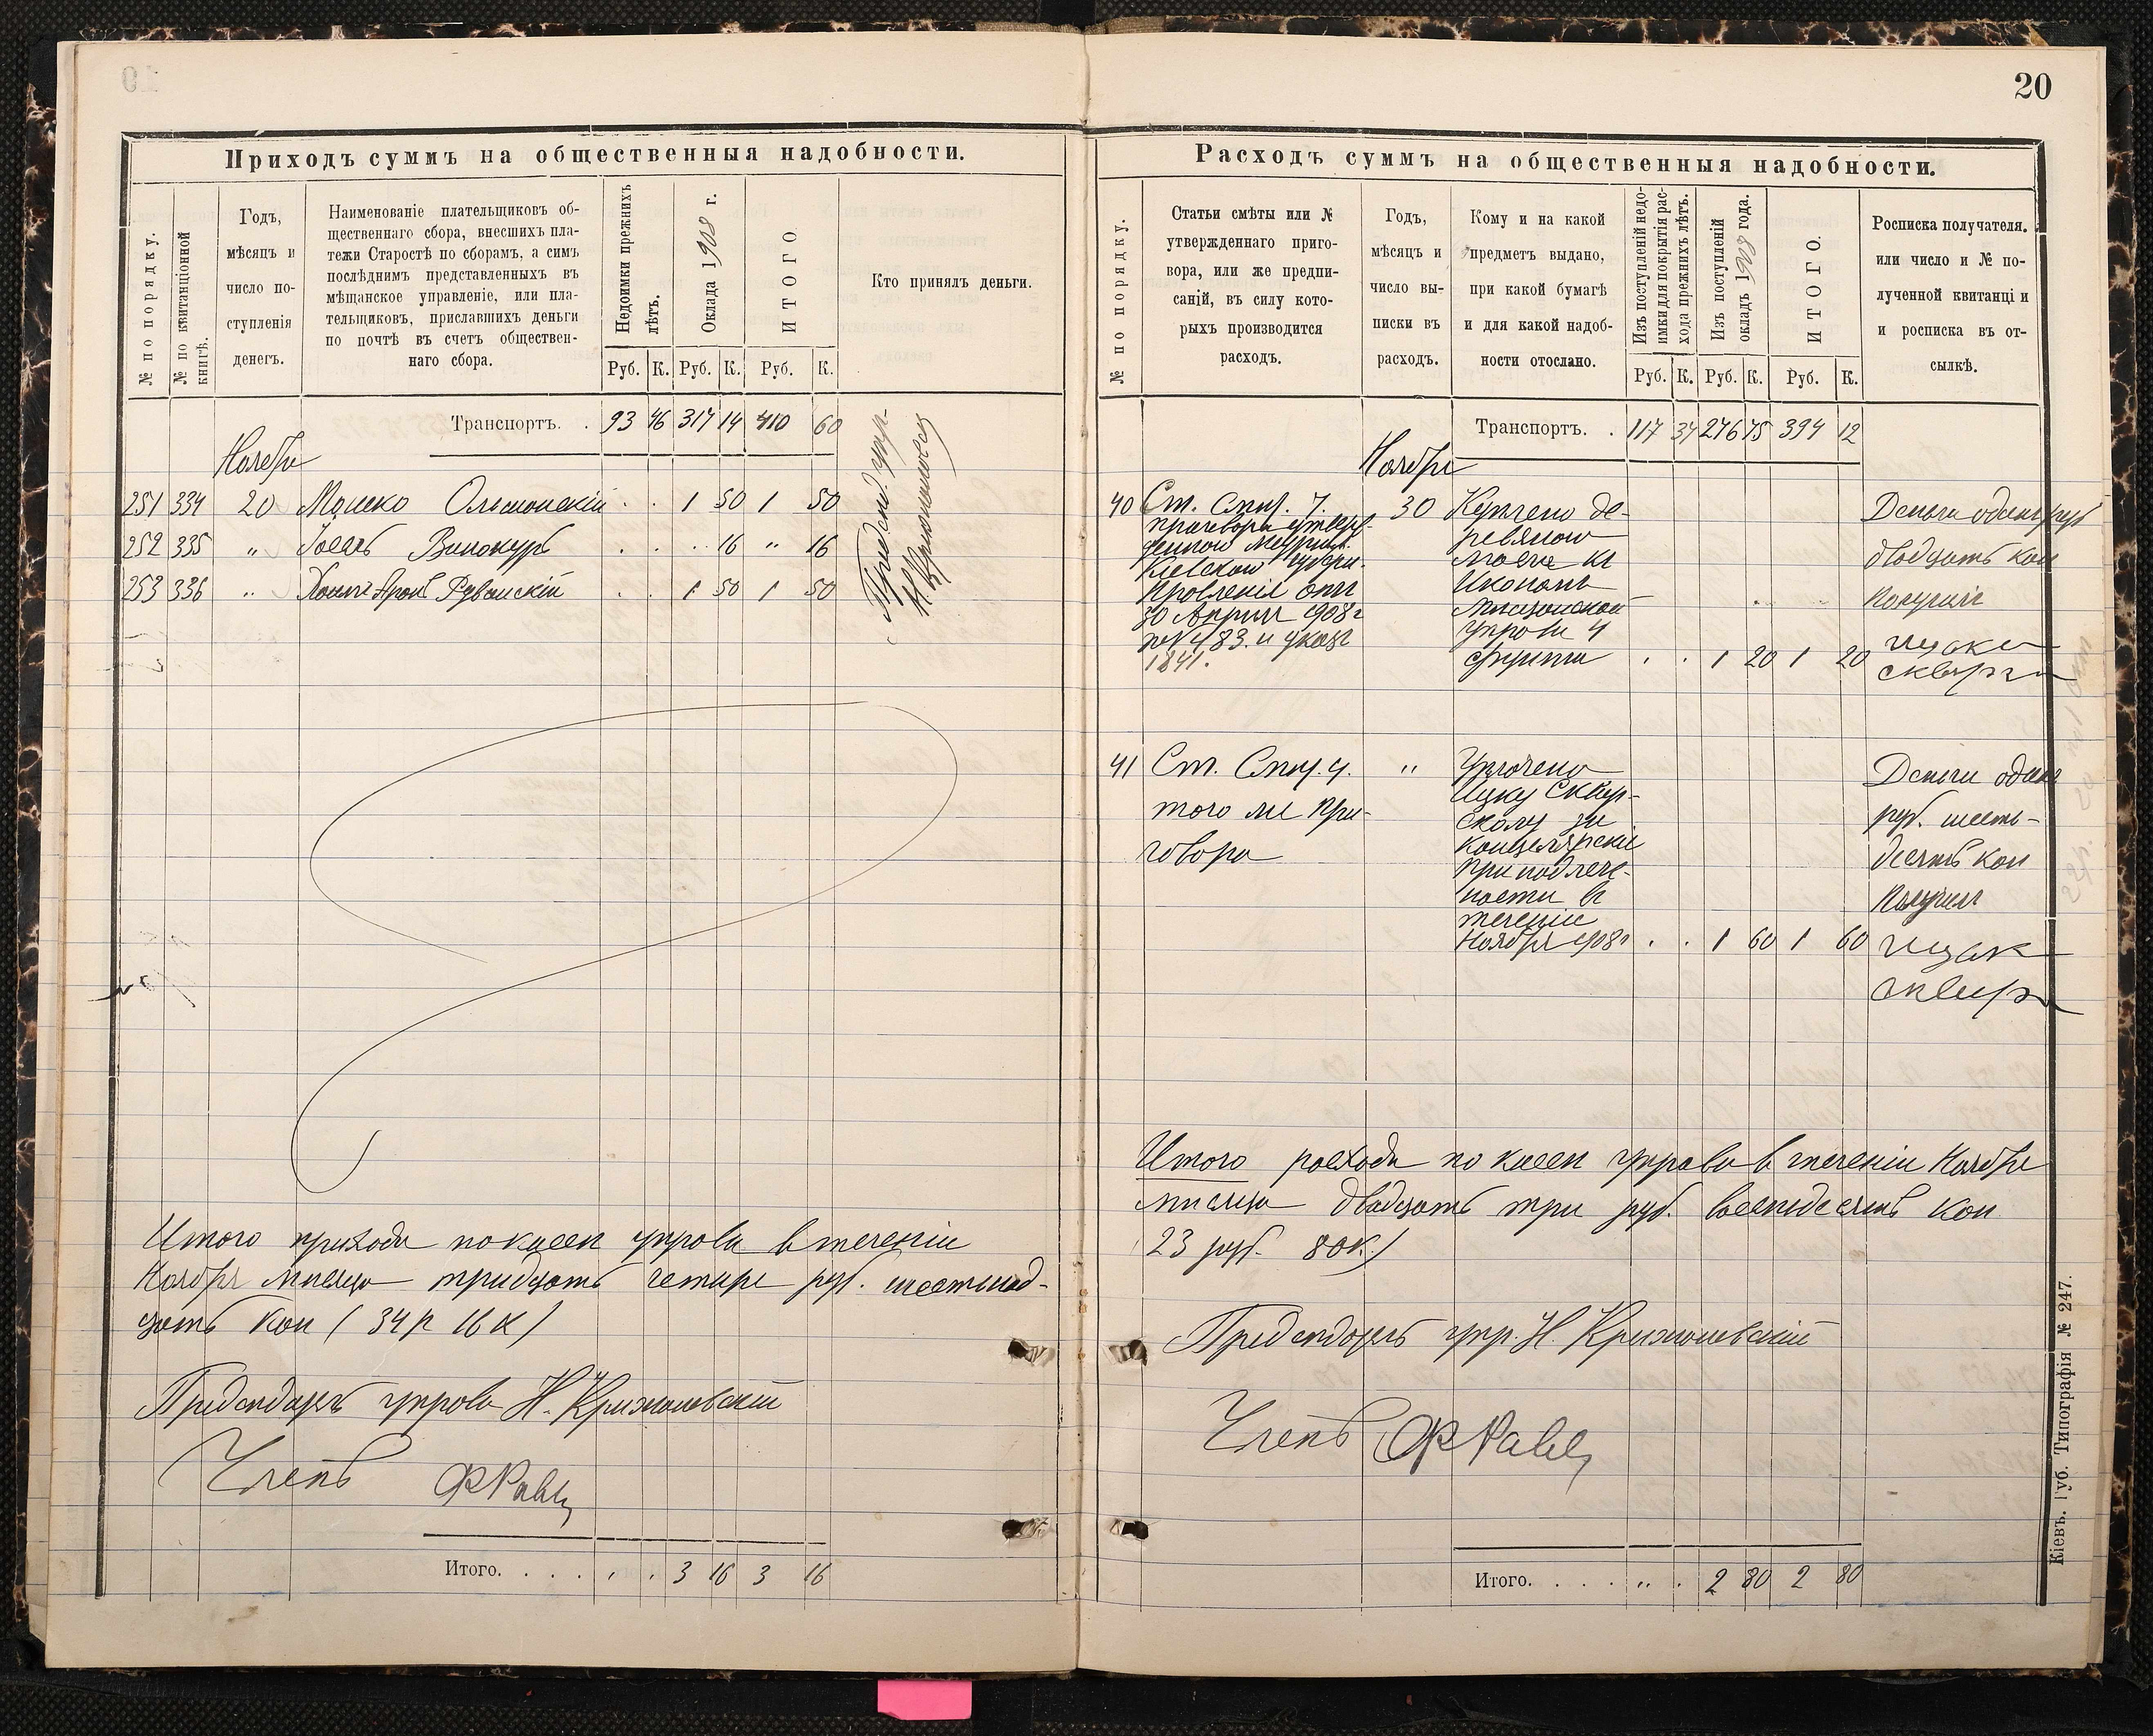 20
Приходъ суммъ на общественныя надобности.
№ по порядку.
№ по квитанціонной книгѣ.
Годъ,
мѣсяцъ и
число по-
ступленія
денегъ.
Наименованіе плательщиковъ об-
щественнаго сбора, внесшихъ пла-
тежи Старостѣ по сборамъ, а симъ
послѣднимъ представленныхъ въ
мѣщанское управленіе, или пла-
тельщиковъ, приславшихъ деньги
по почтѣ въ счетъ обществен-
наго сбора.
Недоимки прежнихъ
лѣтъ.
Оклада 1908 г.
ИТОГО
Кто принялъ деньги.
Руб. К. Руб. К. Руб. К.
Транспортъ. . 93 46 317 14 410 60
Ноября
251 334 20 Мошко . . 1 50 1 50
252 335 " Іосъ Винокуръ . . . 16 " 16
253 336 " Аронъ . . 1 50 1 50
Итого прихода по кассѣ управы въ теченіи
Ноября мѣсяца тридцать четыре руб. шестнад-
цать коп (34 р 16 к)
Предсѣдатель управы Н. Крижановскій
Членъ Ф Равец
Итого. . . . . . 3 16 3 16
Расходъ суммъ на общественныя надобности.
№ по порядку.
Статьи смѣты или №
утвержденнаго приго-
вора, или же предпи-
саній, въ силу кото-
рыхъ производится
расходъ.
Годъ,
мѣсяцъ и
число вы-
писки въ
расходъ.
Кому и на какой
предметъ выдано,
при какой бумагѣ
и для какой надоб-
ности отослано.
Изъ поступленій недо-
имки для покрытія рас-
хода прежнихъ лѣтъ.
Изъ поступленій
окладъ 1908 года.
ИТОГО.
Росписка получателя.
или число и № по-
лученной квитанціи
и росписка въ от-
сылкѣ.
Руб. К. Руб. К. Руб. К.
Транспортъ. . 117 37 276 75 394 12
Ноября
40 Ст. Смѣт. 7.
приговора утверж-
деннаго
Кіевскаго Губерн.
Правленія отъ
30 Апрѣля 908 г
за № 483. и указа
1841.
30 Куплено де-
ревяного
масла къ
Иконамъ
Мѣщанской
Управы 4
фунта . . 1 20 1 20
Деньги одинъ руб
двадцать коп
получилъ
Ицко
Сквирск
41 Ст. Смѣт. 4.
того же При-
говора
" Уплочено
Ицку Сквир-
скому за
Канцелярскіе
принадлеж-
ности въ
теченіи
Ноября 908 г . . 1 60 1 60
Деньги одинъ
руб. шесть-
десятъ коп
получилъ
Ицак
Итого расхода по кассѣ управы въ теченіи Ноября
мѣсяца двадцать три руб. восемдесятъ коп
(23 руб. 80 к.)
Предсѣдатель упр. Н. Крижановскій
Членъ Ф Равец
Итого. . . . " . 2 80 2 80
Кіевъ. Губ. Типографія № 247.